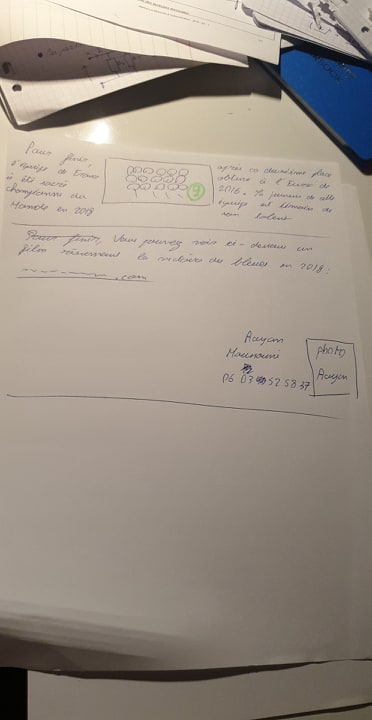 Pour finir,
l'équipe de France
a été sacré
championne du
Monde en 2018
9
après sa deuxième place
obtenu à l'Euro de
2016. La jeunesse de cette
équipe est témoin de
son talent
Pour finir, Vous pouvez voir ci-dessous un
film résumant la victoire des bleus en 2018:
.com
Aayan
06 03 52 58 37
photo
Aayan